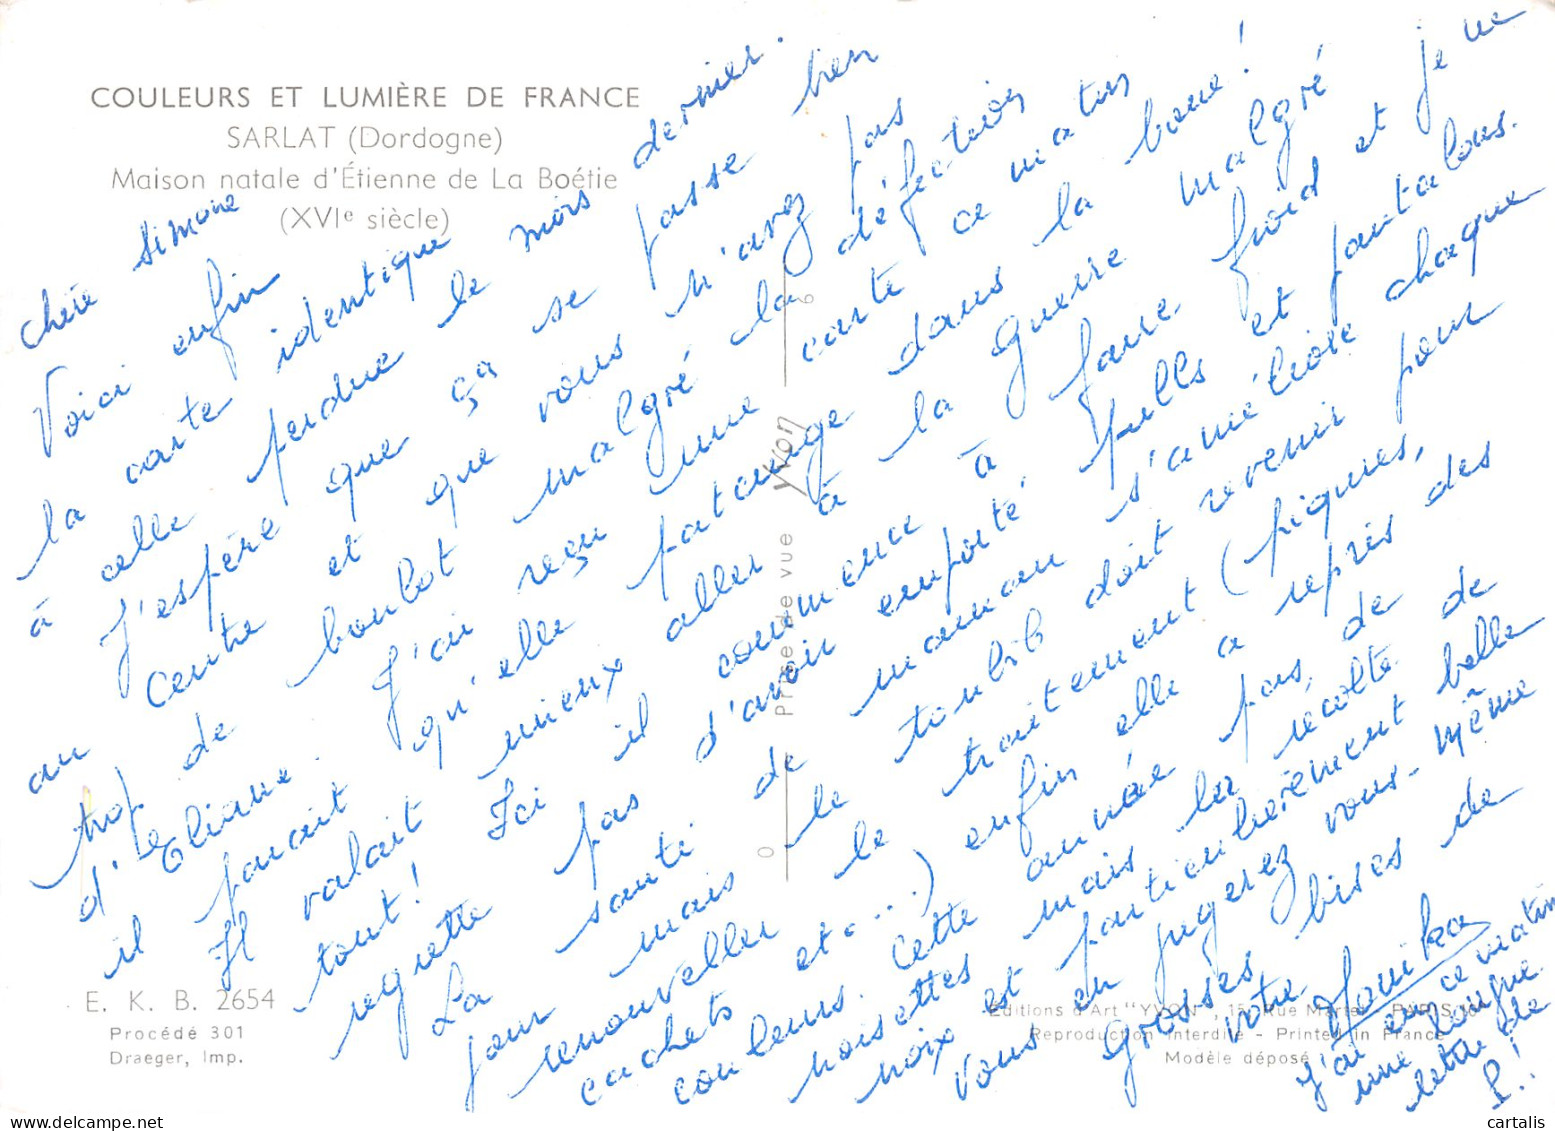 COULEURS ET LUMIÈRE DE FRANCE
SARLAT (Dordogne)
Maison natale d'Étienne de La Boétie
(XVIe siècle)
chère Simone
Voici enfin
la carte identique
à celle perdue le mois dernier.
J'espère que ça se passe bien
au Centre et que vous n'avez pas
trop de boulot malgré la défection
d'Eliane. J'ai reçu une carte ce matin
il parait qu'elle patauge dans la boue!
Il valait mieux aller à la guerre malgré
tout! Ici il commence à faire froid et je ne
regrette pas d'avoir emporté pulls et pantalons.
La santé de maman s'améliore chaque
jour mais le toubib doit revenir pour
renouveller le traitement (piqures,
cachets et...) enfin elle a repris des
couleurs. Cette année pas de
noisettes mais la récolte de
noix est particulièrement belle
vous en jugerez vous-même
Grosses bises de
votre
J'ai reçu ce matin
une longue
lettre de
P.!
Prise de vue
Yvon
E. K. B. 2654
Procédé 301
Draeger, Imp.
Editions d'Art "YVON", 15, Rue Martel - PARIS-10e
Reproduction interdite - Printed in France
Modèle déposé
www.delcampe.net
cartalis